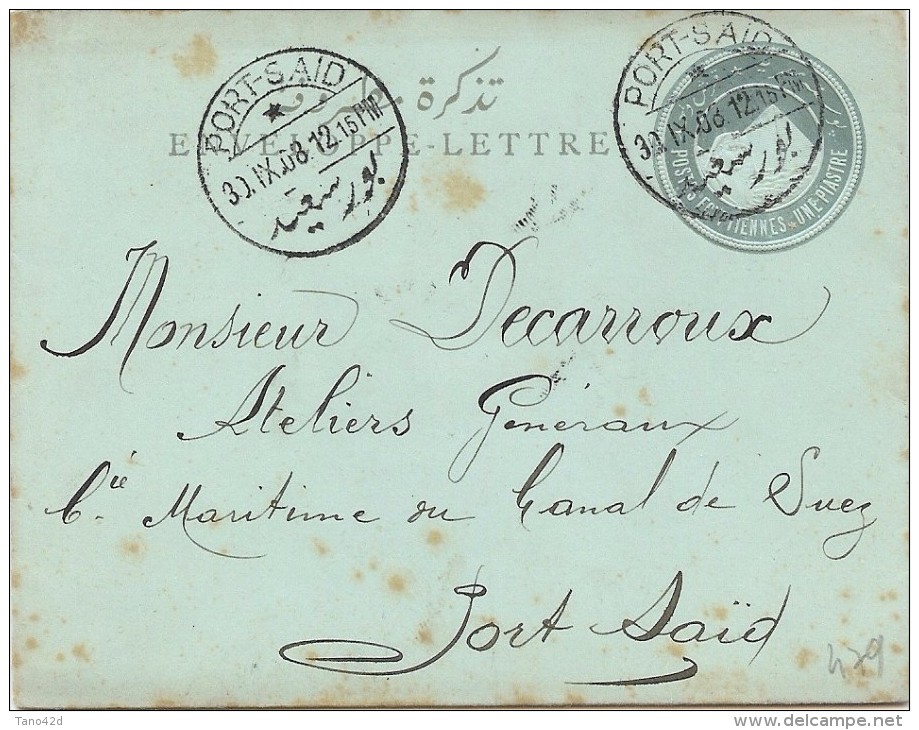 تذكرة
ENVELOPPE-LETTRE
PORT-SAID
30.IX.08.12.15PM
بور سعيد
PORT-SAID
30.IX.08.12.15PM
بور سعيد
POSTES EGYPTIENNES UNE PIASTRE
Monsieur Decarroux
Ateliers Généraux
Cie Maritime du Canal de Suez
Port Saïd
479
Tano42d
www.delcampe.net